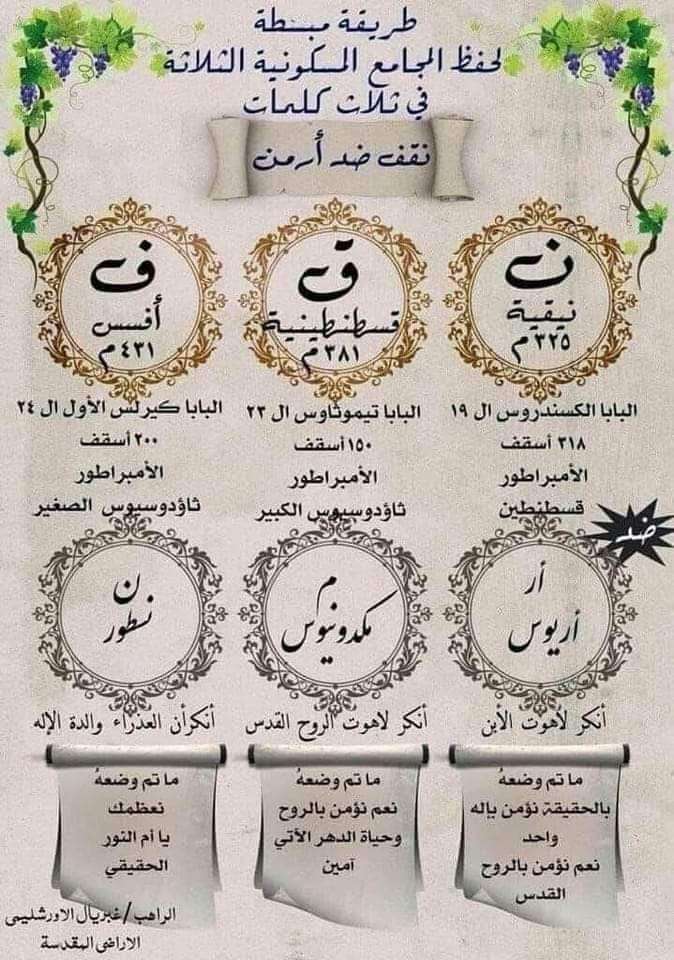 طريقة مبسطة
لحفظ المجامع المسكونية الثلاثة
في ثلاث كلمات
نقف ضد أرمن
ن
نيقية
٣٢٥ م
ق
قسطنطينية
٣٨١ م
ف
أفسس
٤٣١ م
البابا الكسندروس ال ١٩
٣١٨ أسقف
الأمبراطور
قسطنطين
البابا تيموثاوس ال ٢٢
١٥٠ أسقف
الأمبراطور
ثاؤدوسيوس الكبير
البابا كيرلس الأول ال ٢٤
٢٠٠ أسقف
الأمبراطور
ثاؤدوسيوس الصغير
ضد
أر
أريوس
م
مكدونيوس
ن
نسطور
أنكر لاهوت الأبن
أنكر لاهوت الروح القدس
أنكرأن العذراء والدة الإله
ما تم وضعهُ
بالحقيقة نؤمن بإله
واحد
نعم نؤمن بالروح
القدس
ما تم وضعهُ
نعم نؤمن بالروح
وحياة الدهر الأتي
آمين
ما تم وضعهُ
نعظمك
يا أم النور
الحقيقي
الراهب/غبريال الاورشليمى
الاراضى المقدسة